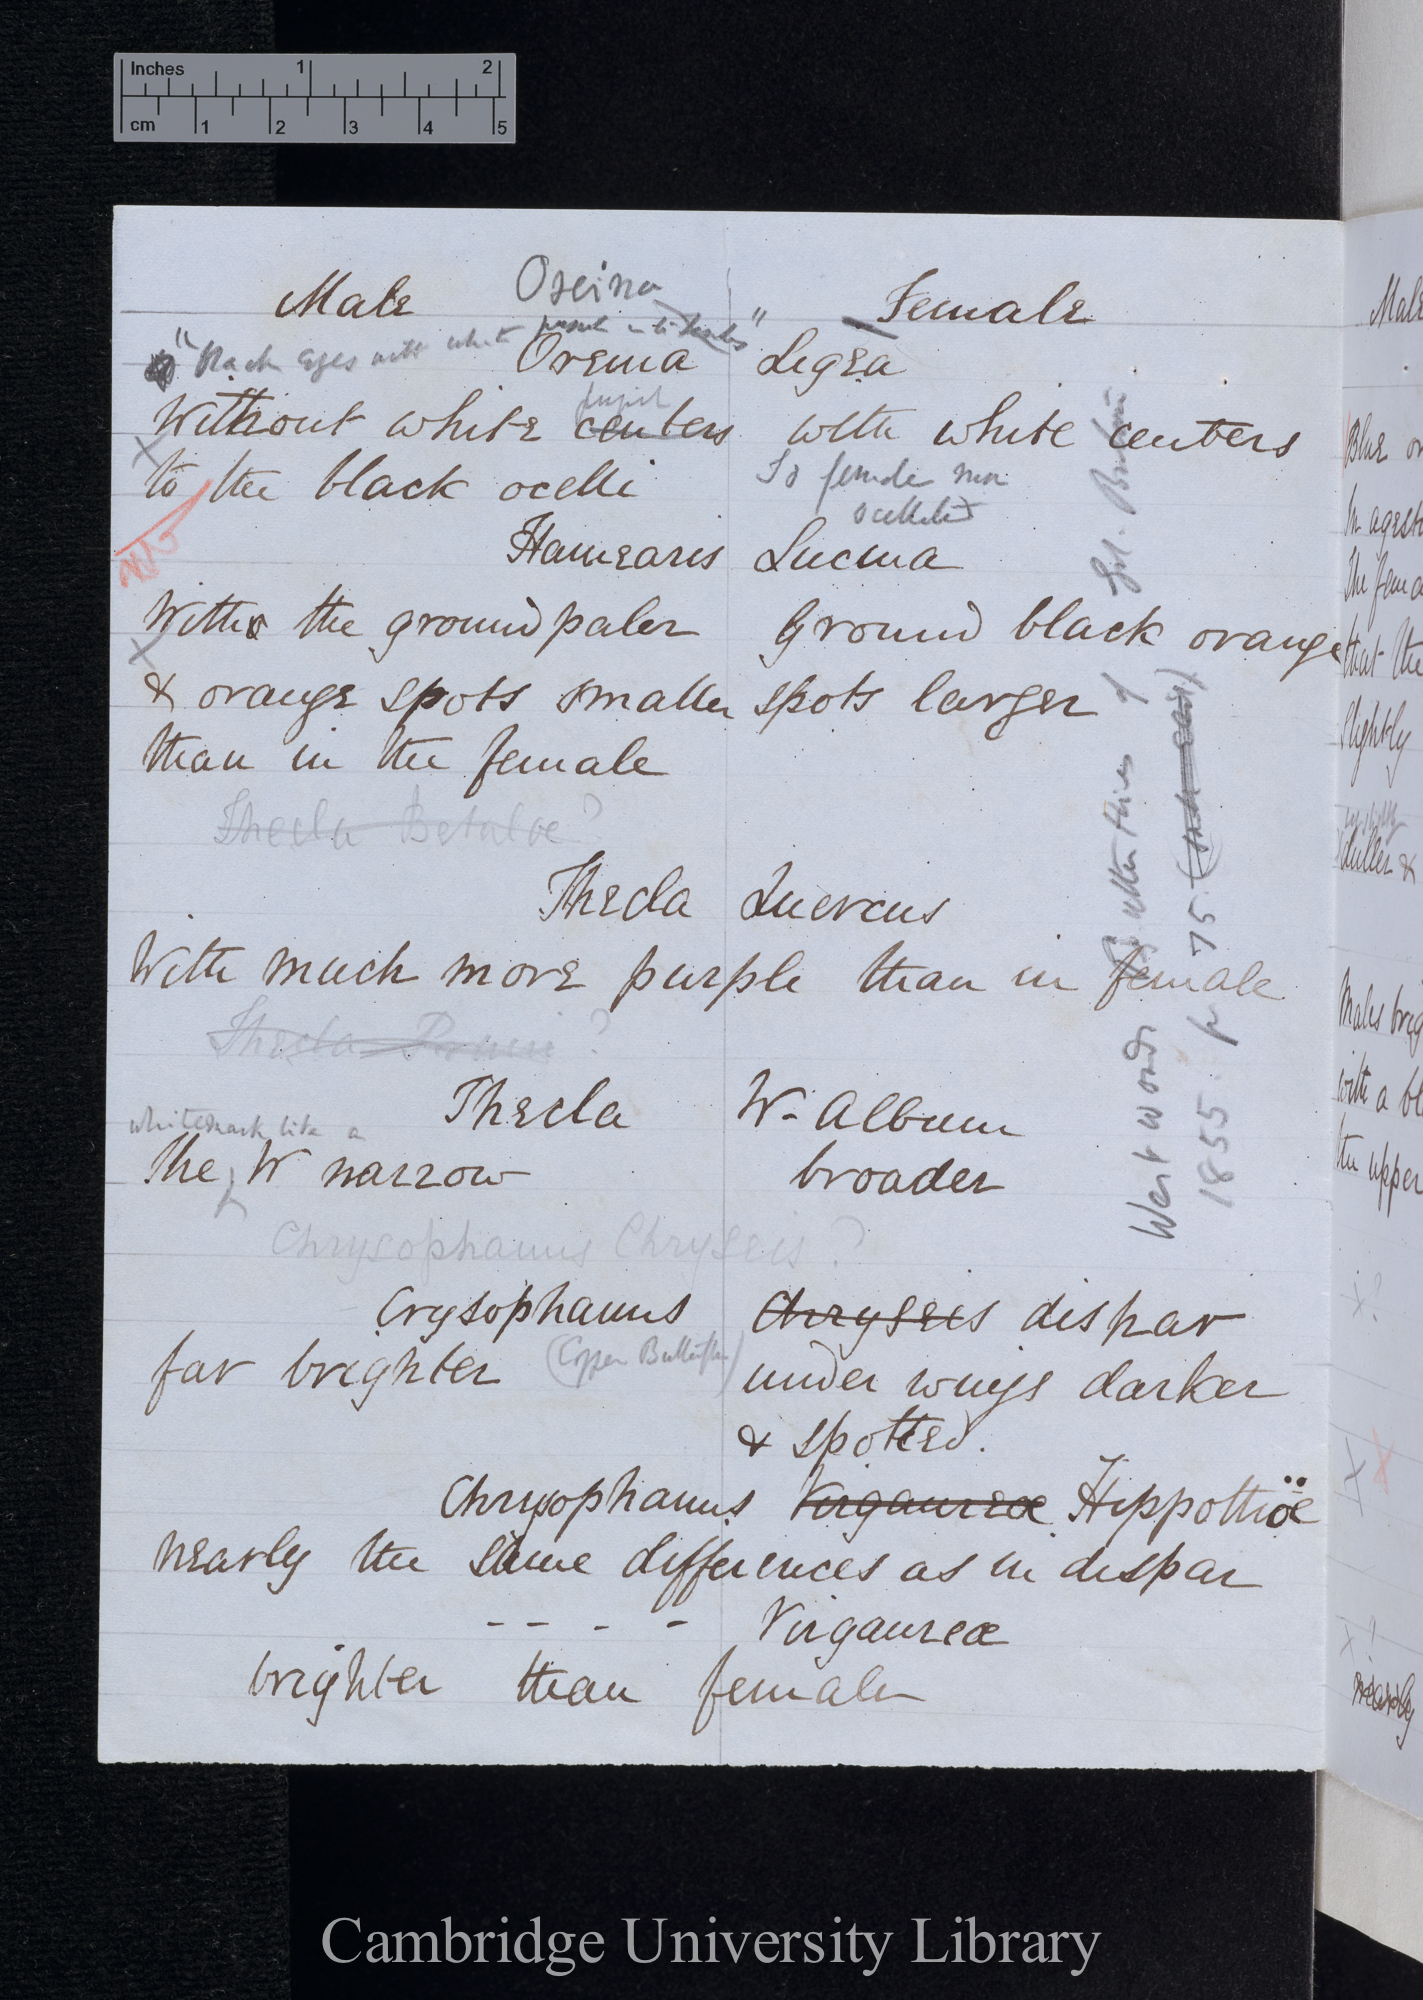 Inches 1 2
cm 1 2 3 4 5
Male Female
"Black Eyes with white
Orema Ligea
pupil
Without white centers with white centers
to the black ocelli
So female more
ocellated
Hamearis Lucina
With the ground paler Ground black orange
& orange spots smaller spots larger
than in the female
Thecla Betulae?
Thecla Quercus
With much more purple than in female
Thecla Pruni ?
Thecla W-Album
whitemark like a
The W narrow broader
Chrysophanus Chryseis ?
Crysophanus Chryseis dispar
far brighter (Copper Butterflies) under wings darker
& spotted.
Chrysophanus Virgaureae Hippothöe
nearly the same differences as in dispar
- - - - Virgaureae
brighter than female
Westwoods Butterflies of Grt. Britain
1855. p 75.
Male
Blue or
In agest
The fema
that the
slightly
duller &
Males brig
with a bl
the upper
nearly
Cambridge University Library